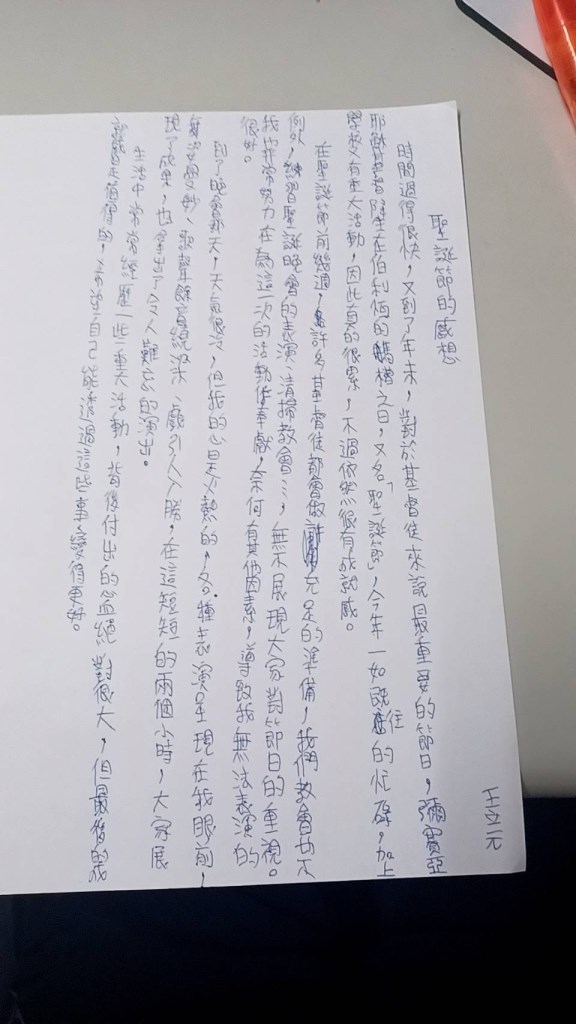 聖誕節的感想
王立元
時間過得很快，又到了年末，對於基督徒來說最重要的節日，彌賽亞
耶穌基督降生在伯利恆的馬槽之日，又名「聖誕節」，今年一如既往的忙碌，加上
學校又有重大活動，因此真的很累，不過依然很有成就感。
在聖誕節前幾週，許多基督徒都會做充足的準備，我們教會也不
例外，練習聖誕晚會的表演、清掃教會…，無不展現大家對節日的重視。
我也非常努力在為這一次的活動作奉獻，奈何有其他因素，導致我無法表演的
很好。
到了晚會那天，天氣很冷，但我的心是火熱的，各種表演呈現在我眼前，
舞姿曼妙、歌聲餘音繞梁、戲引人入勝，在這短短的兩個小時，大家展
現了成果，也拿出了令人難忘的演出。
生活中常常經歷一些重大活動，背後付出的心血絕對很大，但最後的成
就都是值得的，希望自己能透過這些事，變得更好。